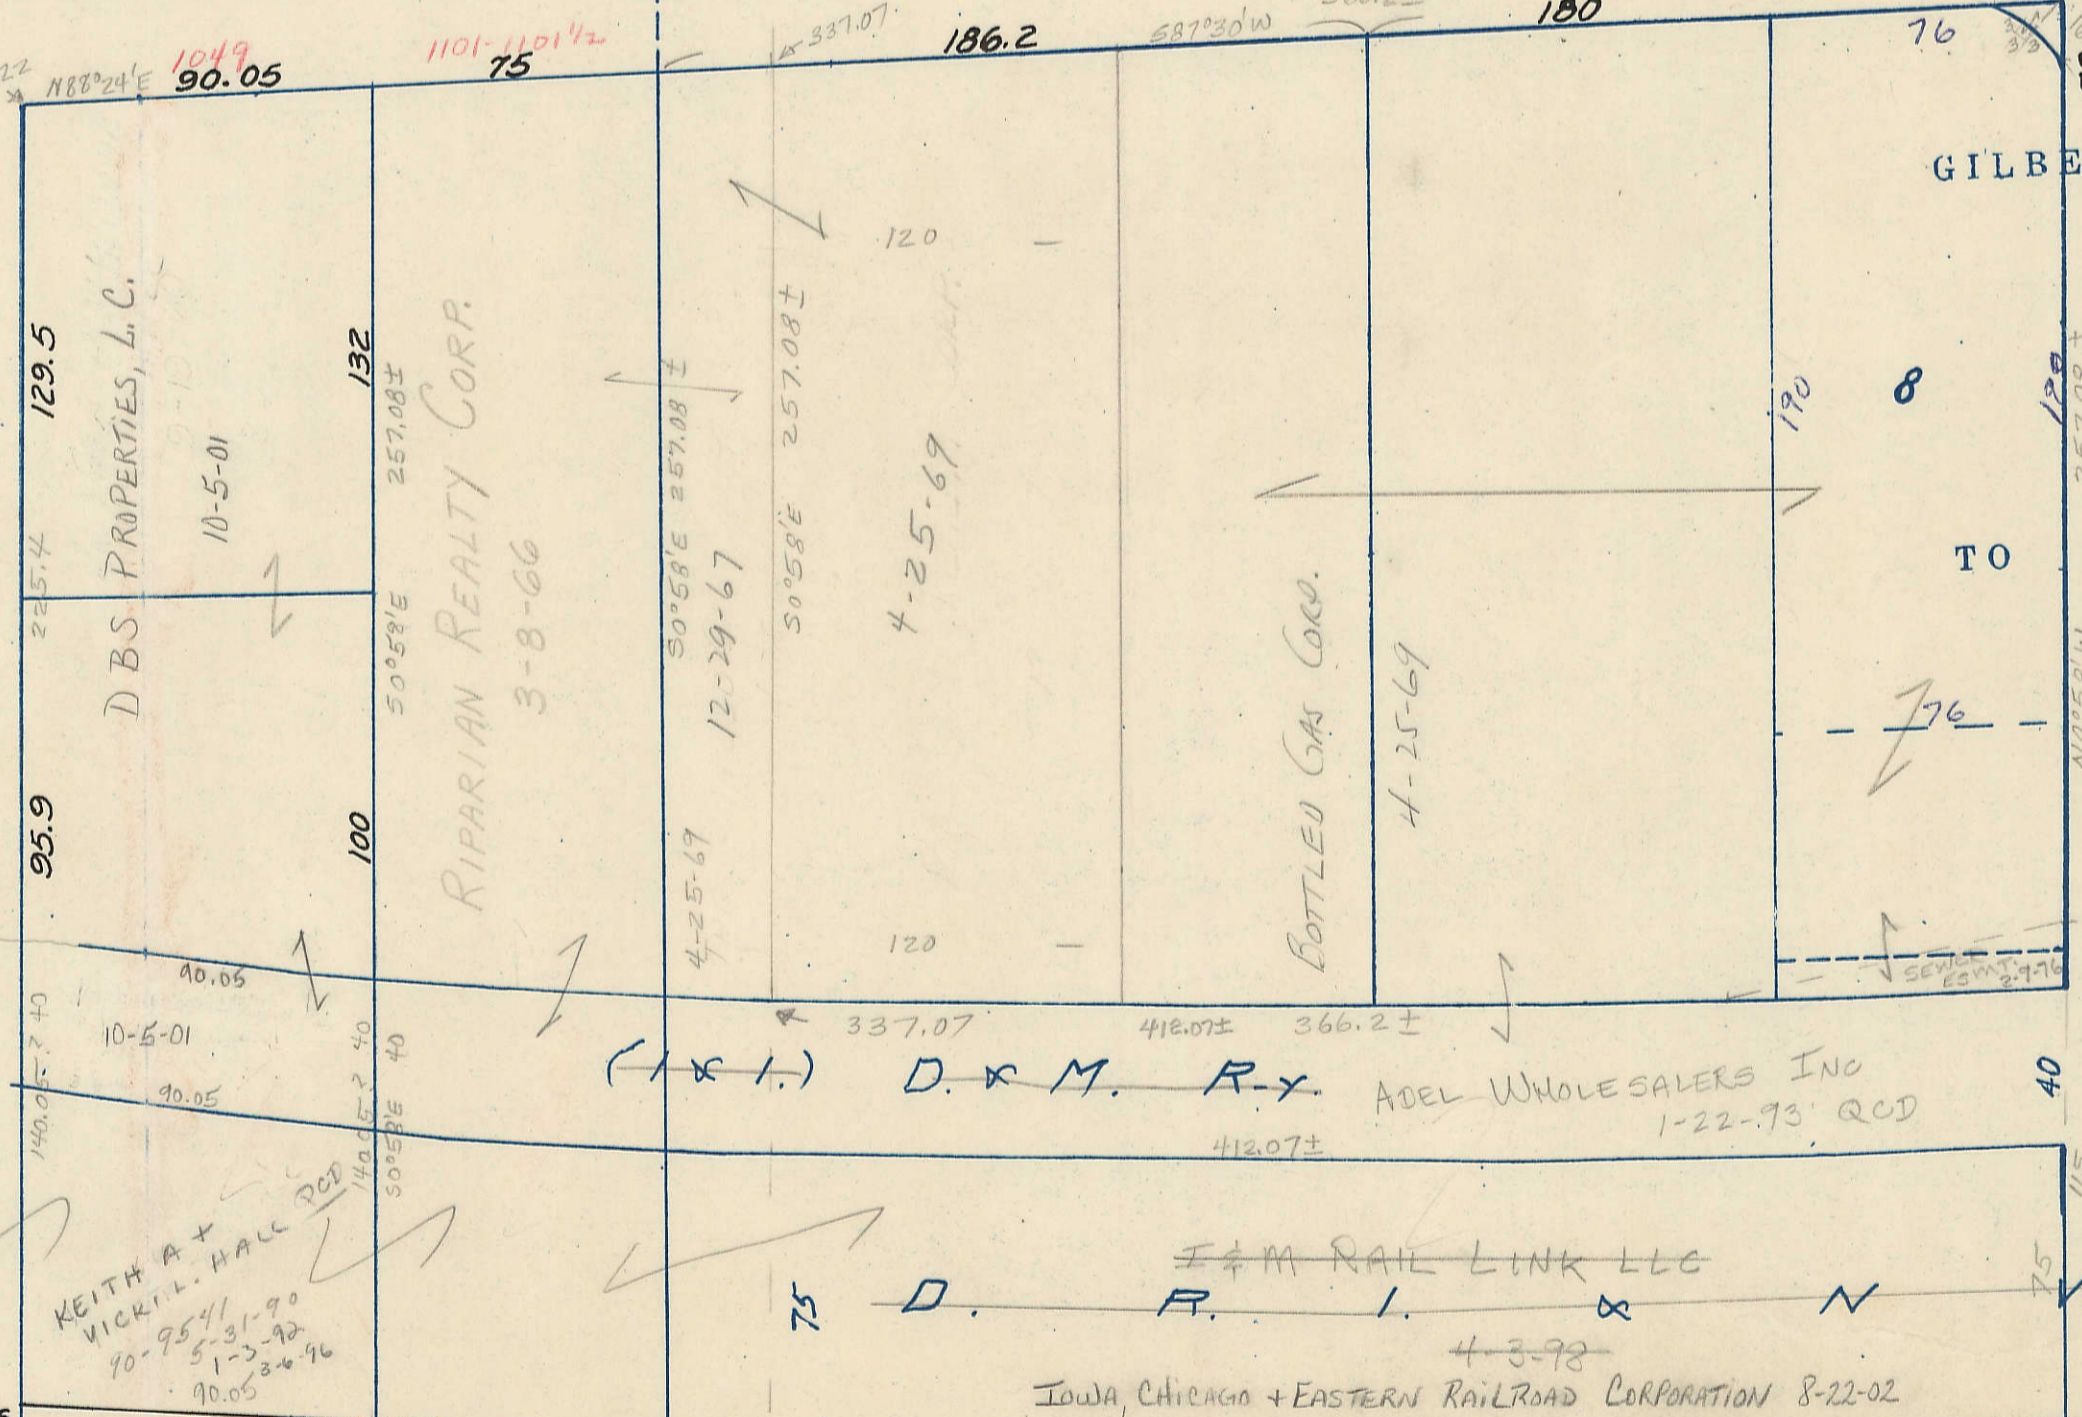 1049
1101-1101 1/2
337.07
186.2
S87°30'W
180
76
N88°24'E
90.05
75
GILBE
129.5
DBS PROPERTIES, L.C.
10-5-01
132
257.08±
S0°58'E
RIPARIAN REALTY CORP.
3-8-66
S0°58'E 257.08 ±
12-29-67
4-25-69
S0°58'E 257.08±
120
4-25-69
120
BOTTLED GAS CORP.
4-25-69
190
8
190
TO
76
225.4
95.9
100
SEWER
ESMT.
2-9-76
90.05
10-5-01
90.05
140.05-? 40
140.05-? 40
S0°58'E 40
337.07
412.07±
366.2±
(I & I.) D. & M. R-Y.
ADEL WHOLESALERS INC
1-22-93 QCD
40
412.07±
KEITH A +
VICKI L. HALL QCD
90-9541
5-31-90
1-3-92
3-6-96
90.05
I & M RAIL LINK LLC
75
75
D. R. I. & N
4-3-98
IOWA, CHICAGO + EASTERN RAILROAD CORPORATION 8-22-02